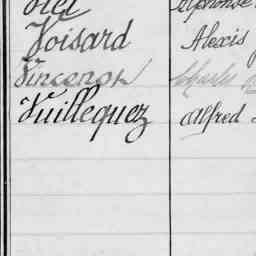 Voisard Alexis
Vincenot Charles
Vuillequez Alfred